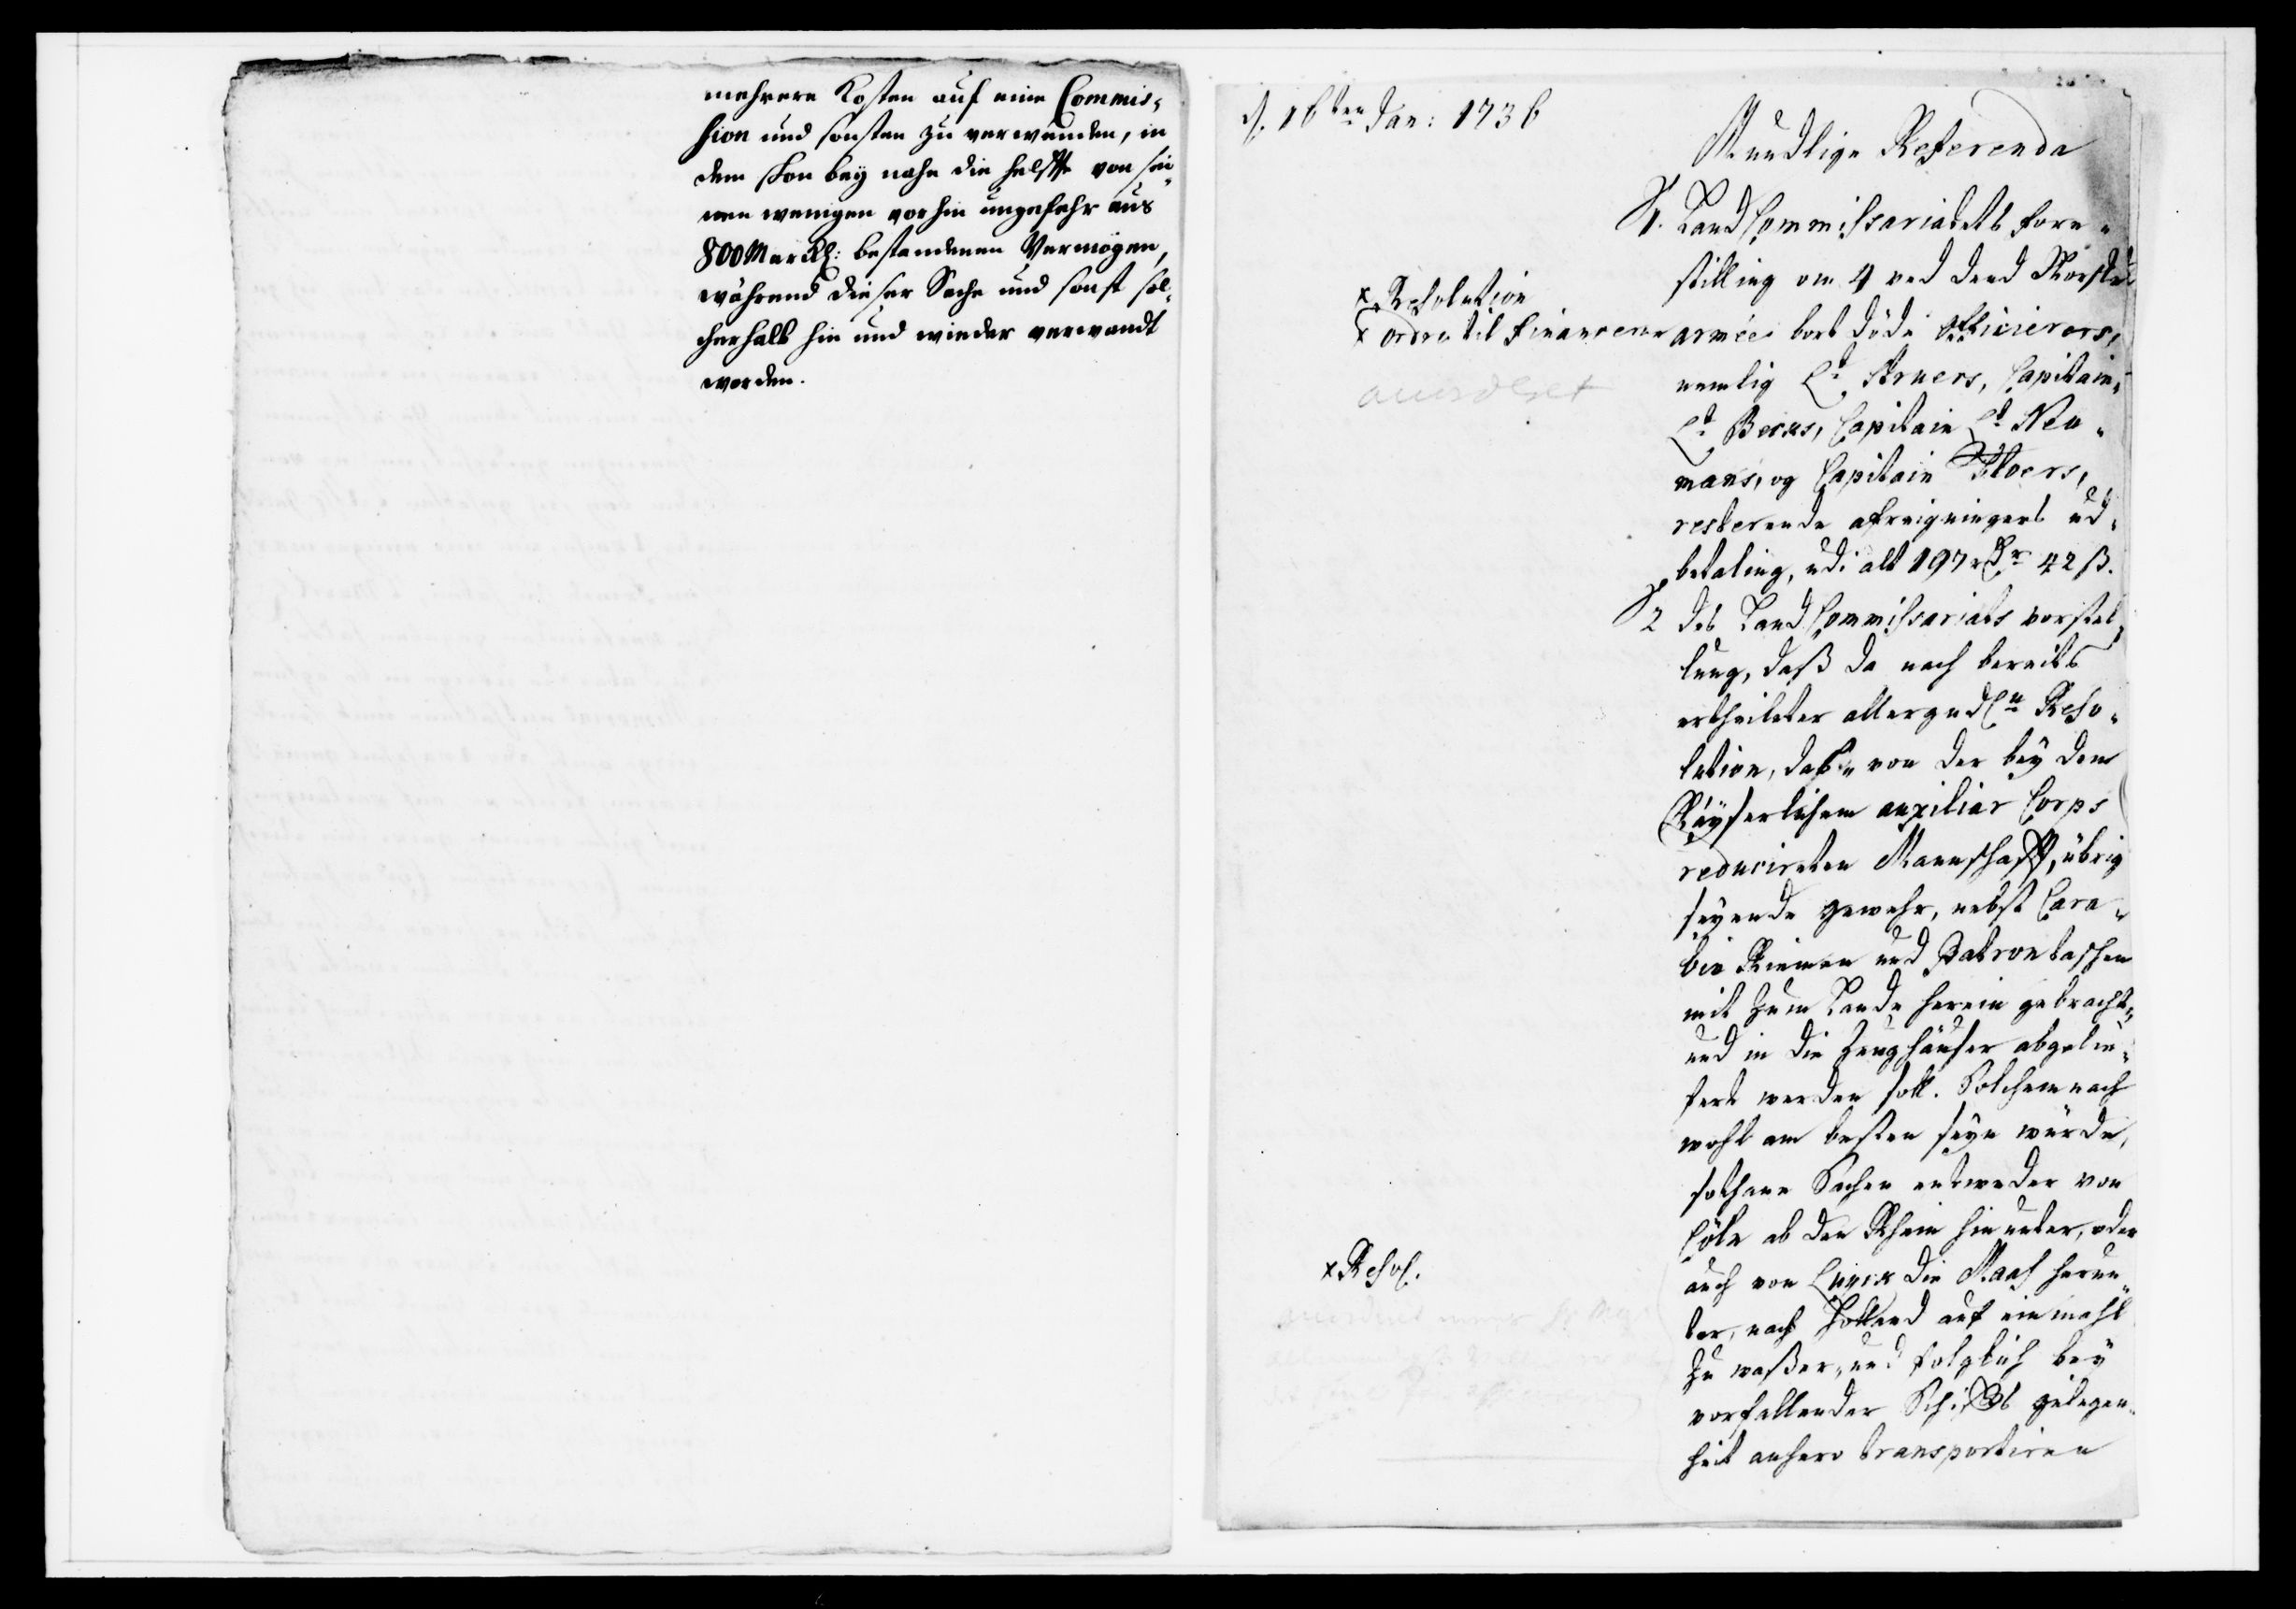 mehrere Kosten auf eine Commis-
sion und sonsten zu verwenden, in
dem schon bey nahe die helffte von sei-
nen wenigen vorhin ungefehr aus
800 Marck: bestandenen Vermögen,
während dieser Sache und sonst sol-
cherhalb hin und wieder verwandt
worden.
d. 16ten Jan: 1736
Mundlige Referenda
1. Land Commissariatets fore-
stilling om 4 ved dend Norske
x Resolution
x ordre til Financerne
armée bort döde Officierers,
nemlig Lt Struers, Capitain
Lt Becks, Capitain Lt Neu-
mans, og Capitain
resterende afregningers ud-
betaling, udi alt 197 rdr 42 ß.
2 des Land Commissariats vorstel-
lung, daß da nach bereits
ertheileter allergndln Reso-
lution, das von der bey dem
Käyserlichem auxiliar Corps
reducireten Mannschafft, übrig
seyende gewehr, nebst Cara-
bin Riemen und Patrontaschen
mit zum Lande herein gebracht,
und in die Zeughäuser abgelie-
fert werden soll. Solchemnach
wohl am besten seyn würde,
sothane Sachen entweder von
Cöln ab den Rhein hinunter, oder
x Resol.
auch von Luyck die Maas herun-
ter, nach Holland auf einmahl
zu waßer, und folglich bey
vorfallender Schiffs gelegen-
heit anhero transportiren